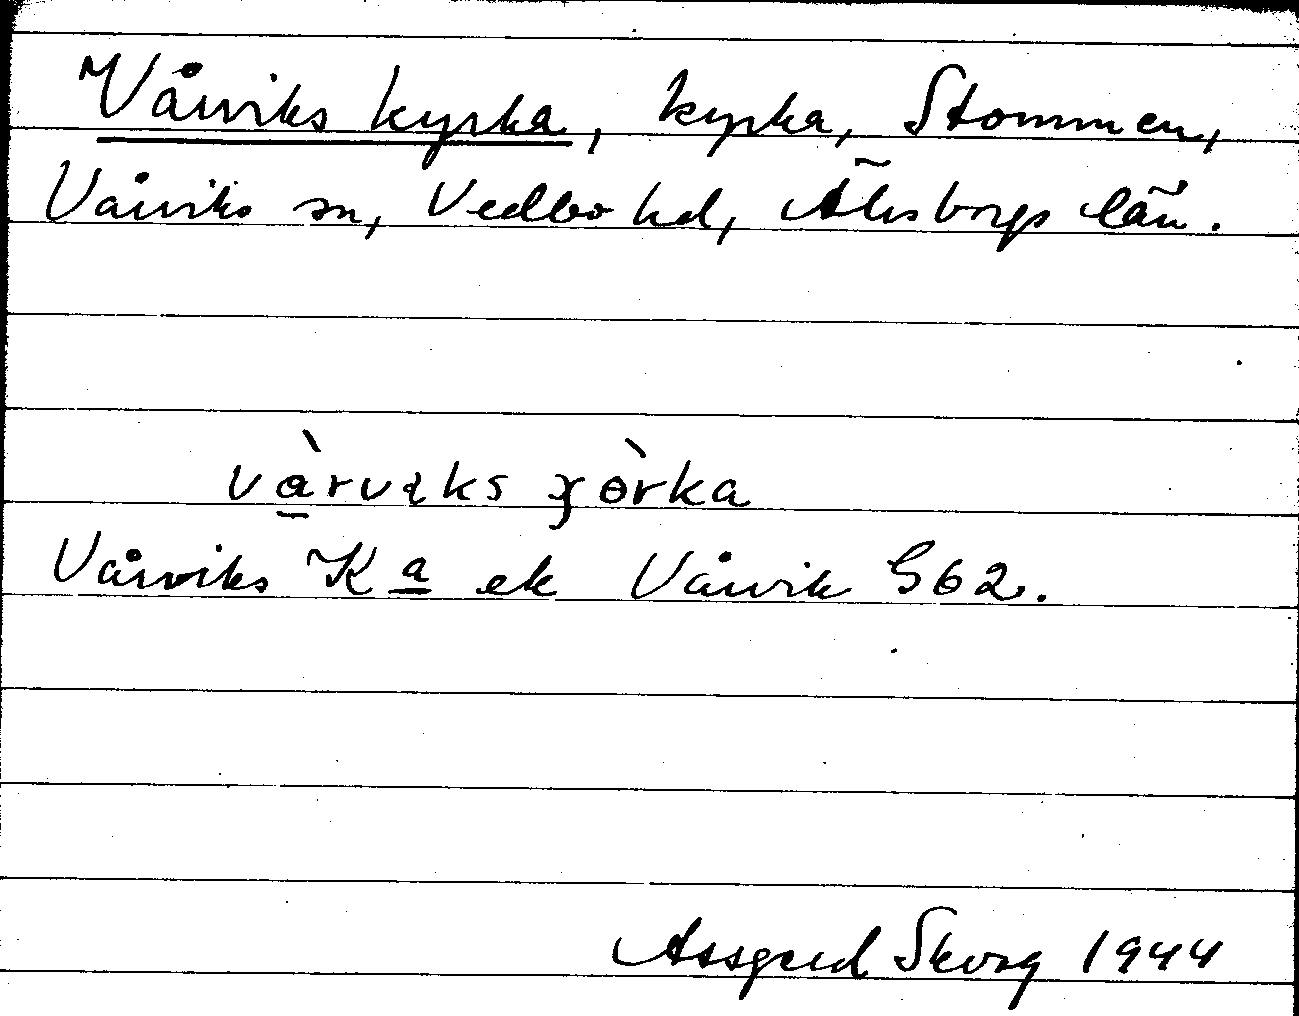 Vårviks kyrka, kyrka, Stommen,
Vårviks sn, Vedbo hd, Älvsborgs län.
Vårviks K a ek Vårvik G62.
Assgerd Skorg 1944